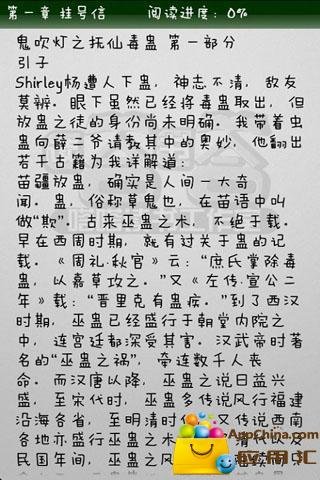 第一章 挂号信 阅读进度：0%
鬼吹灯之抚仙毒蛊 第一部分
引子
Shirley杨遭人下蛊，神志不清，敌友
莫辨。眼下虽然已经将毒蛊取出，但
放蛊之徒的身份尚未明确。我带着虫
蛊向薛二爷请教其中的奥妙，他翻出
若干古籍为我详解道：
苗疆放蛊，确实是人间一大奇
闻。蛊，俗称草鬼也，在苗语中叫
做“欺”。古来巫蛊之术，不绝于载。
早在西周时期，就有过关于蛊的记
载。《周礼·秋官》云：“庶氏掌除毒
蛊，以嘉草攻之。”又《左传·宣公二
年》载：“晋里克有蛊疾。”到了西汉
时期，巫蛊已经盛行于朝堂内院之
中，连宫廷都深受其害。汉武帝时著
名的“巫蛊之祸”，牵连数千人丧
命。而汉唐以降，巫蛊之说日益兴
盛，至宋代时，巫蛊多传说风行福建
沿海各省，至明清时代，又传说西南
各地亦盛行巫蛊之术。
民国年间，巫蛊之风
AppChina.com
应用汇